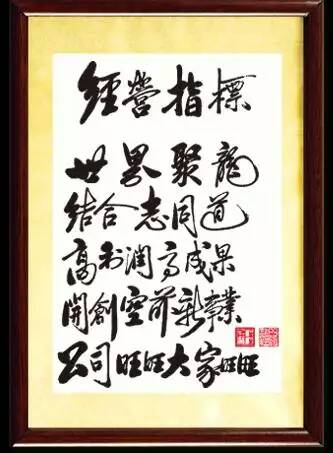 經營指標
世界聚龍
結合志同道
高利潤高成果
開創空前新事業
公司旺旺大家旺旺